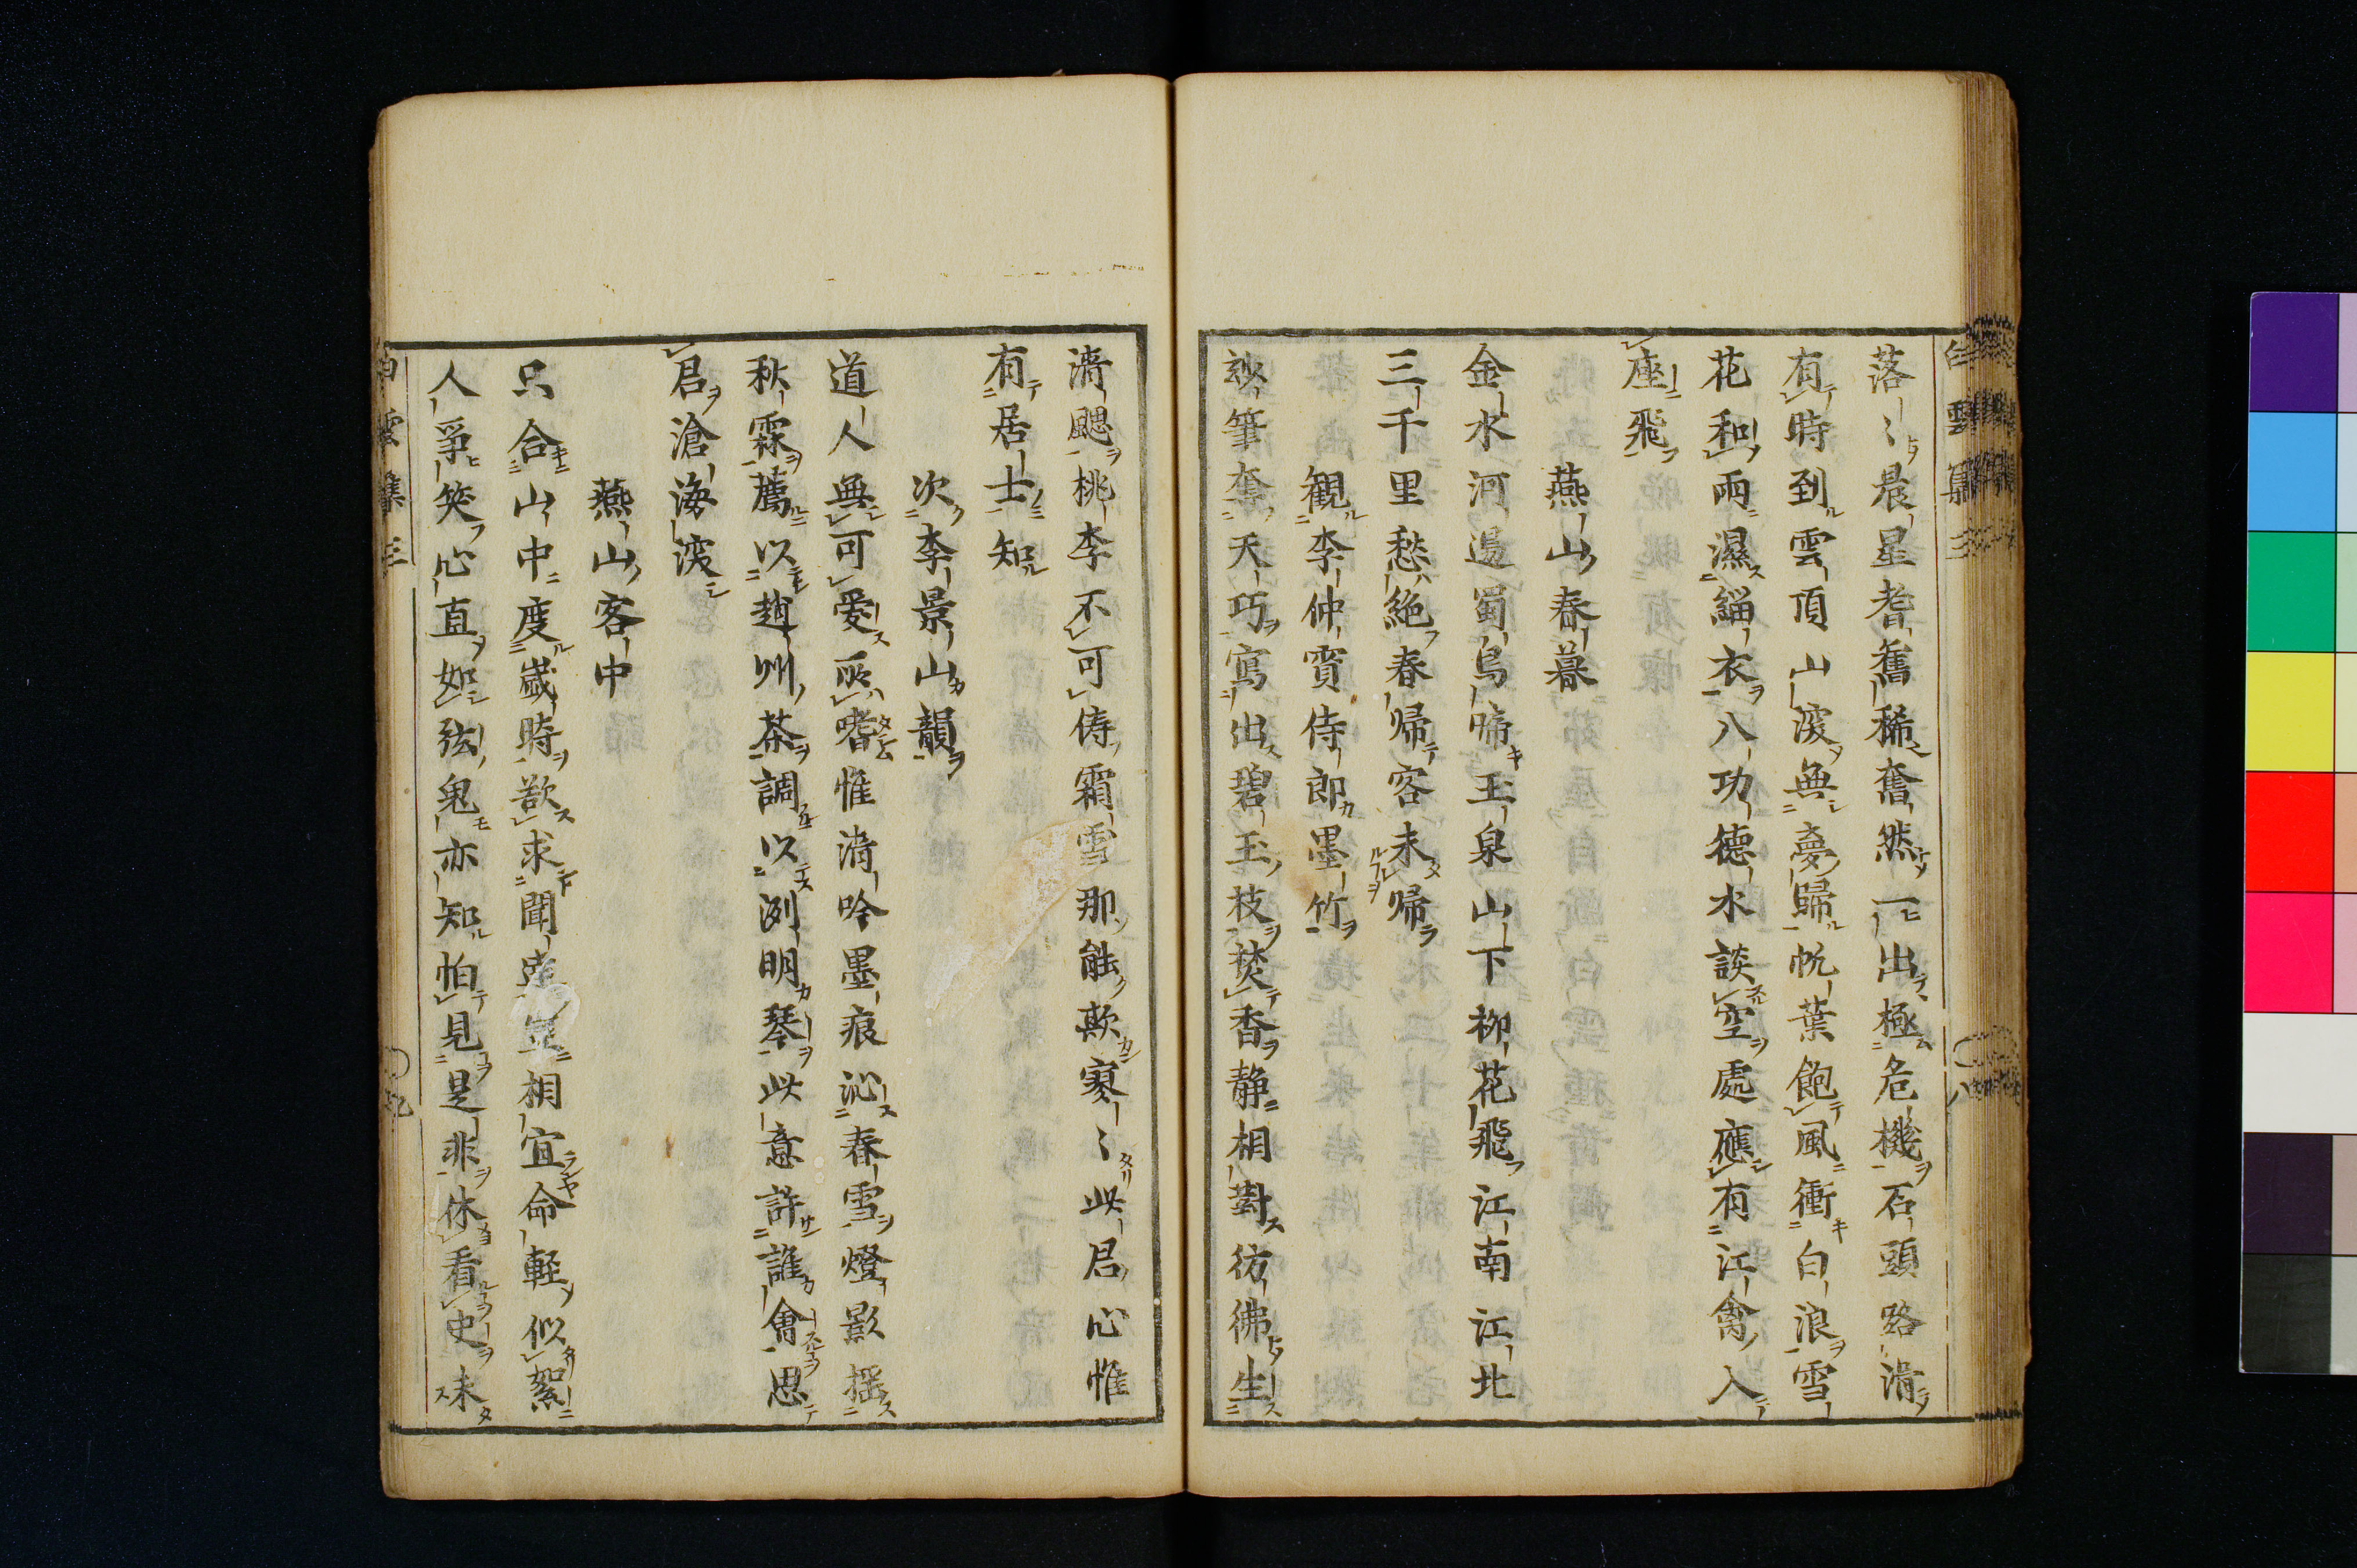 落〻晨星耆舊稀奮然一出極危機石頭路滑
有時到雲頂山深無夢歸帆葉飽風衝白浪雪
花和雨濕緇衣八功德水談空處應有江禽入
座飛
燕山春暮
金水河邊蜀鳥啼玉泉山下柳花飛江南江北
三千里愁絶春帰客未帰
観李仲賓侍郎墨竹
玅筆奪天巧寫出碧玉枝焚香静相對彷彿生
清颸桃李不可俦霜雪那能欺寥〻此君心惟
有居士知
次李景山韻
道人無可愛所嗜惟清吟墨痕沁春雪燈影揺
秋霖薦以趙州茶調以渕明琴此意許誰會思
君滄海深
燕山客中
只合山中度歲時欲求聞相宜命軽似絮
人爭笑心直如弦鬼亦知怕見是非休看史未
白雲集三
八
白雲集三
九